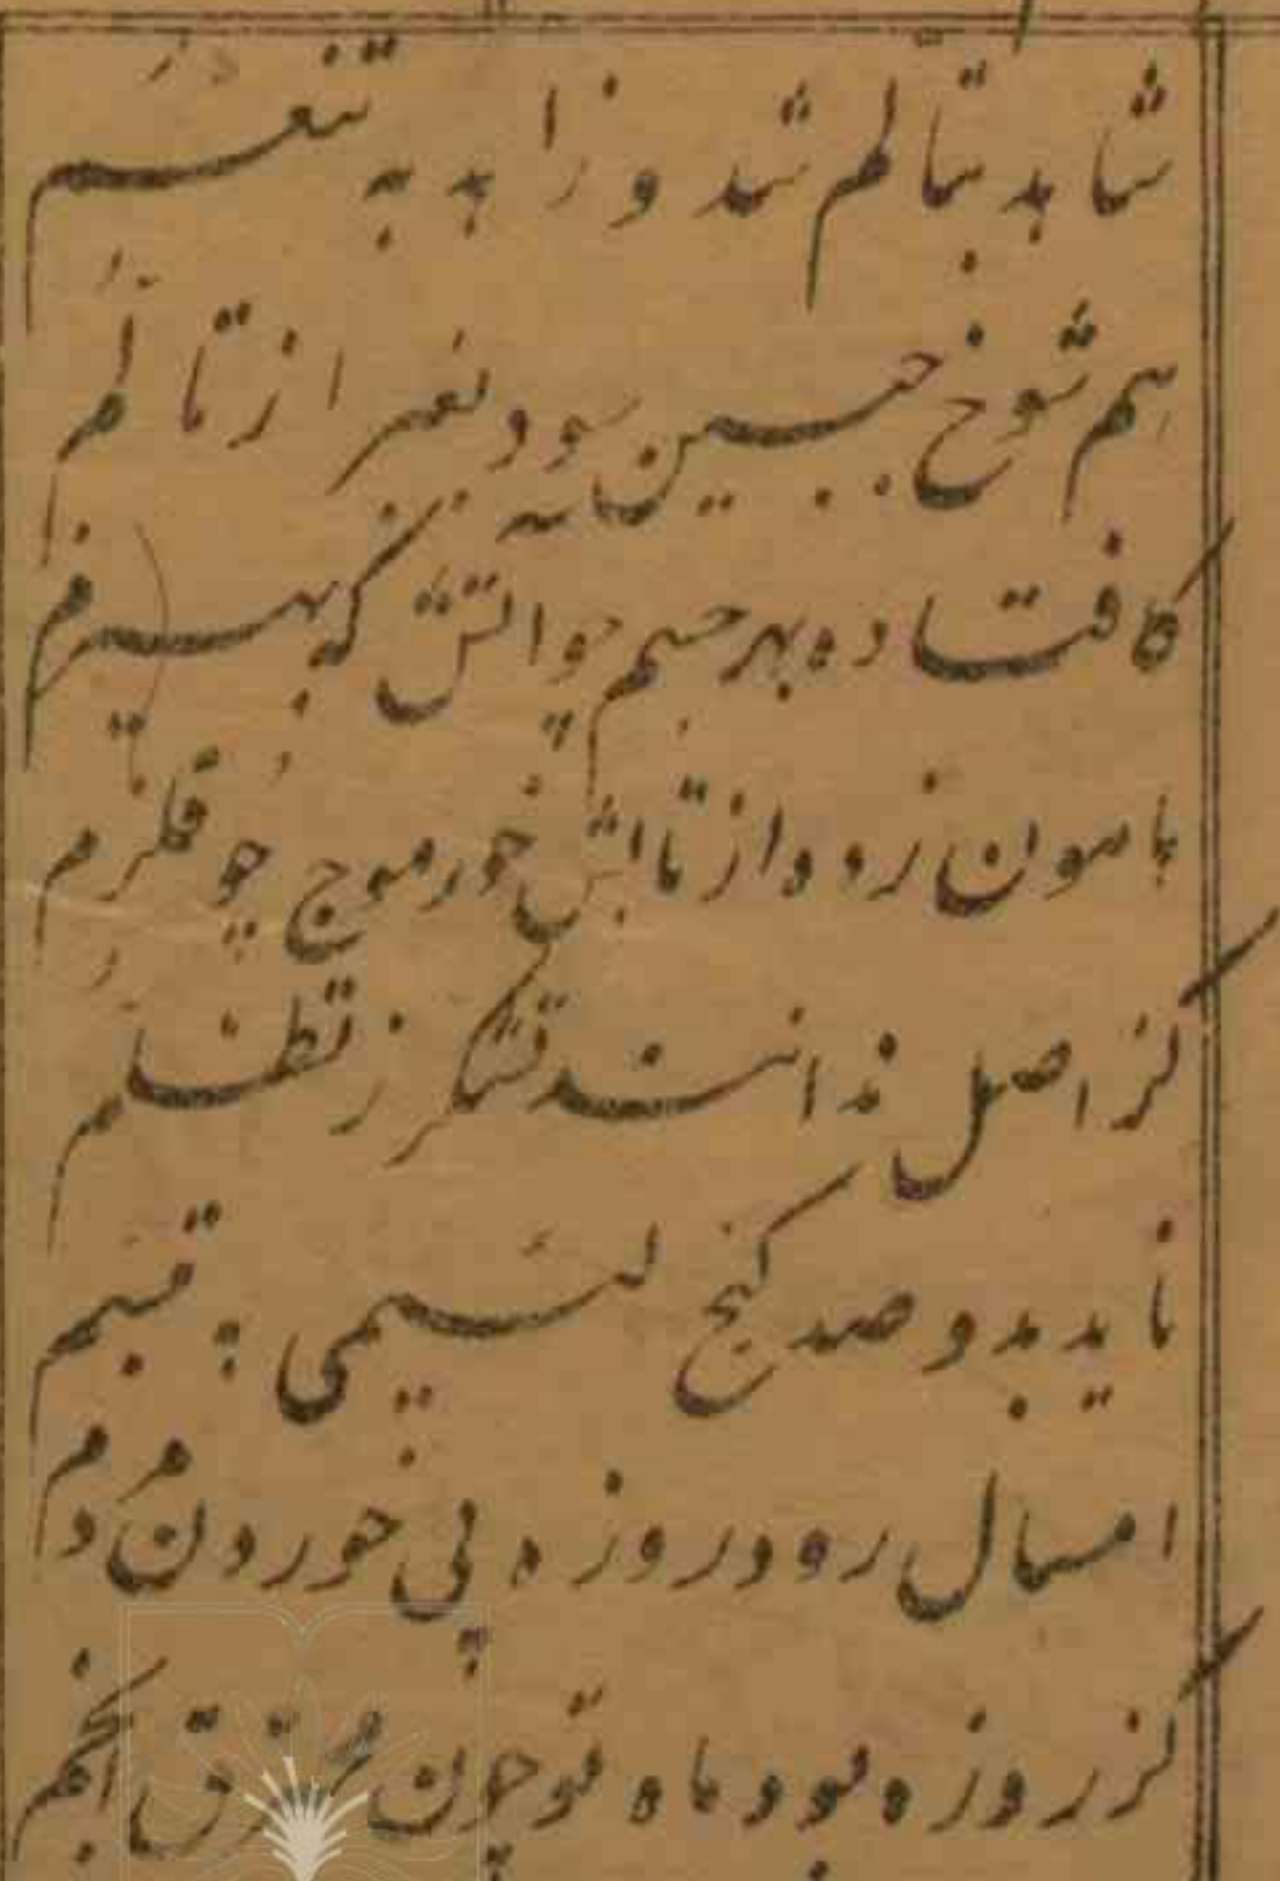 شاهد بتألم شد و زاهد به تنعم
هم شوخ جبین سود و نغیر از تألم
کافتاده بهر جسم چو آتش که بهیزم
هامون زده از تابش خور موج چو قلزم
کز اصل ندانند تشکر ز تظلم
ناید بدو صد گنج لئیمی به تبسم
امسال رود روزه پی خوردن دم دم
کز روزه بود ماه تو چون محترق انجم